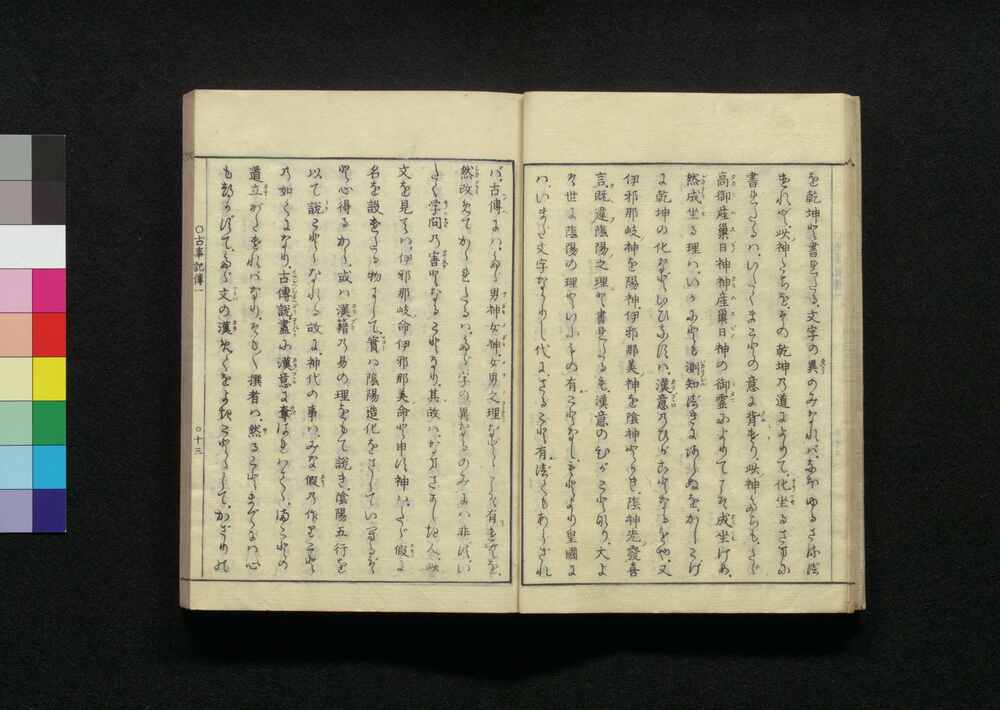 を乾坤と書れたる、文字の異のみなれば、なほゆるさるべ
きれど、此神たちを、その乾坤の道によりて、化坐るさまに
書れたるは、いたくまことの意に背けり、此神たちも、たゞ
高御産巣日神神産巣日神の御霊によりてこそ成坐けめ、
然成坐る理は、いかにとも測知べきにあらぬを、かしこげ
に乾坤の化なりといひなすは、漢意のひがことなるをや、又
伊邪那岐神を陽神、伊邪那美神を陰神とかき、陰神先發喜
言、既違陰陽之理と書れたるも、漢意のひがことなり、大よ
そ世に陰陽の理といふもの有ことなし、もとより皇國に
は、いまだ文字なかりし代に、さること有べくもあらざれ
ば、古傳には、たゞ男神女神、女男之理などゝこそ有けむを、
然改めてかゝれたるは、たゞ字の異なるのみには非ず、い
たく学問の害となることなり、其故は、なまさかしき人、此
文を見ては、伊邪那岐命伊邪那美命と申す神は、たゞ假に
名を設けたる物にして、實は陰陽造化をさしていへるぞ
と心得るから、或は漢籍の易の理をもて説き、陰陽五行を
以て説ことゝなれる故に、神代の事は、みな假の作こと
の如くになり、古傳説盡に漢意に奪はれはてゝ、まことの
道立がたければなり、そも〳〵撰者は、然ることまでには心
もつかずて、たゞ文の漢めくをよきことゝして、かざりの
○古事記傳一
○十三